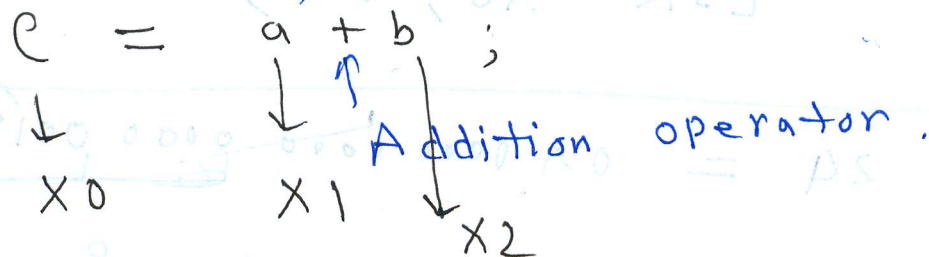 c = a + b ;
Addition operator.
X0 X1
X2